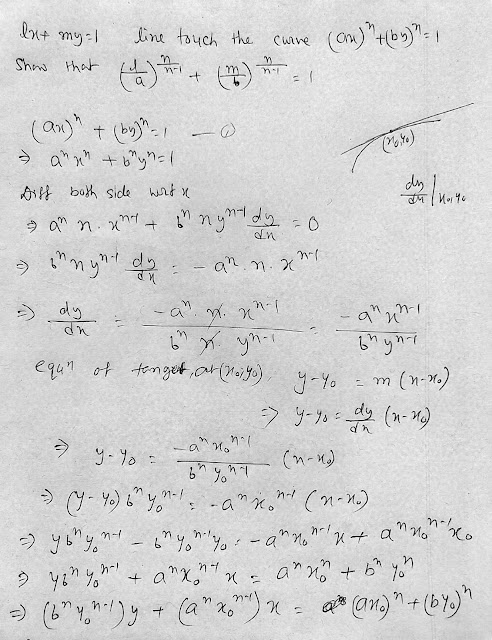 lx + my = 1 line touch the curve (ax)ⁿ + (by)ⁿ = 1
Show that (l/a)^(n/(n-1)) + (m/b)^(n/(n-1)) = 1
(ax)ⁿ + (by)ⁿ = 1 — ①
⇒ aⁿ xⁿ + bⁿ yⁿ = 1
(x₀, y₀)
Diff both side wrt x
dy/dx | x₀, y₀
⇒ aⁿ n. xⁿ⁻¹ + bⁿ n yⁿ⁻¹ dy/dx = 0
⇒ bⁿ n yⁿ⁻¹ dy/dx = - aⁿ. n. xⁿ⁻¹
⇒ dy/dx = (-aⁿ. n. xⁿ⁻¹)/(bⁿ n. yⁿ⁻¹) = (-aⁿ xⁿ⁻¹)/(bⁿ yⁿ⁻¹)
equⁿ of tangent, at (x₀, y₀), y - y₀ = m (x - x₀)
⇒ y - y₀ = dy/dx (x - x₀)
⇒ y - y₀ = (-aⁿ x₀ⁿ⁻¹)/(bⁿ y₀ⁿ⁻¹) (x - x₀)
⇒ (y - y₀) bⁿ y₀ⁿ⁻¹ = -aⁿ x₀ⁿ⁻¹ (x - x₀)
⇒ y bⁿ y₀ⁿ⁻¹ - bⁿ y₀ⁿ⁻¹ y₀ = -aⁿ x₀ⁿ⁻¹ x + aⁿ x₀ⁿ⁻¹ x₀
⇒ y bⁿ y₀ⁿ⁻¹ + aⁿ x₀ⁿ⁻¹ x = aⁿ x₀ⁿ + bⁿ y₀ⁿ
⇒ (bⁿ y₀ⁿ⁻¹) y + (aⁿ x₀ⁿ⁻¹) x = (ax₀)ⁿ + (by₀)ⁿ